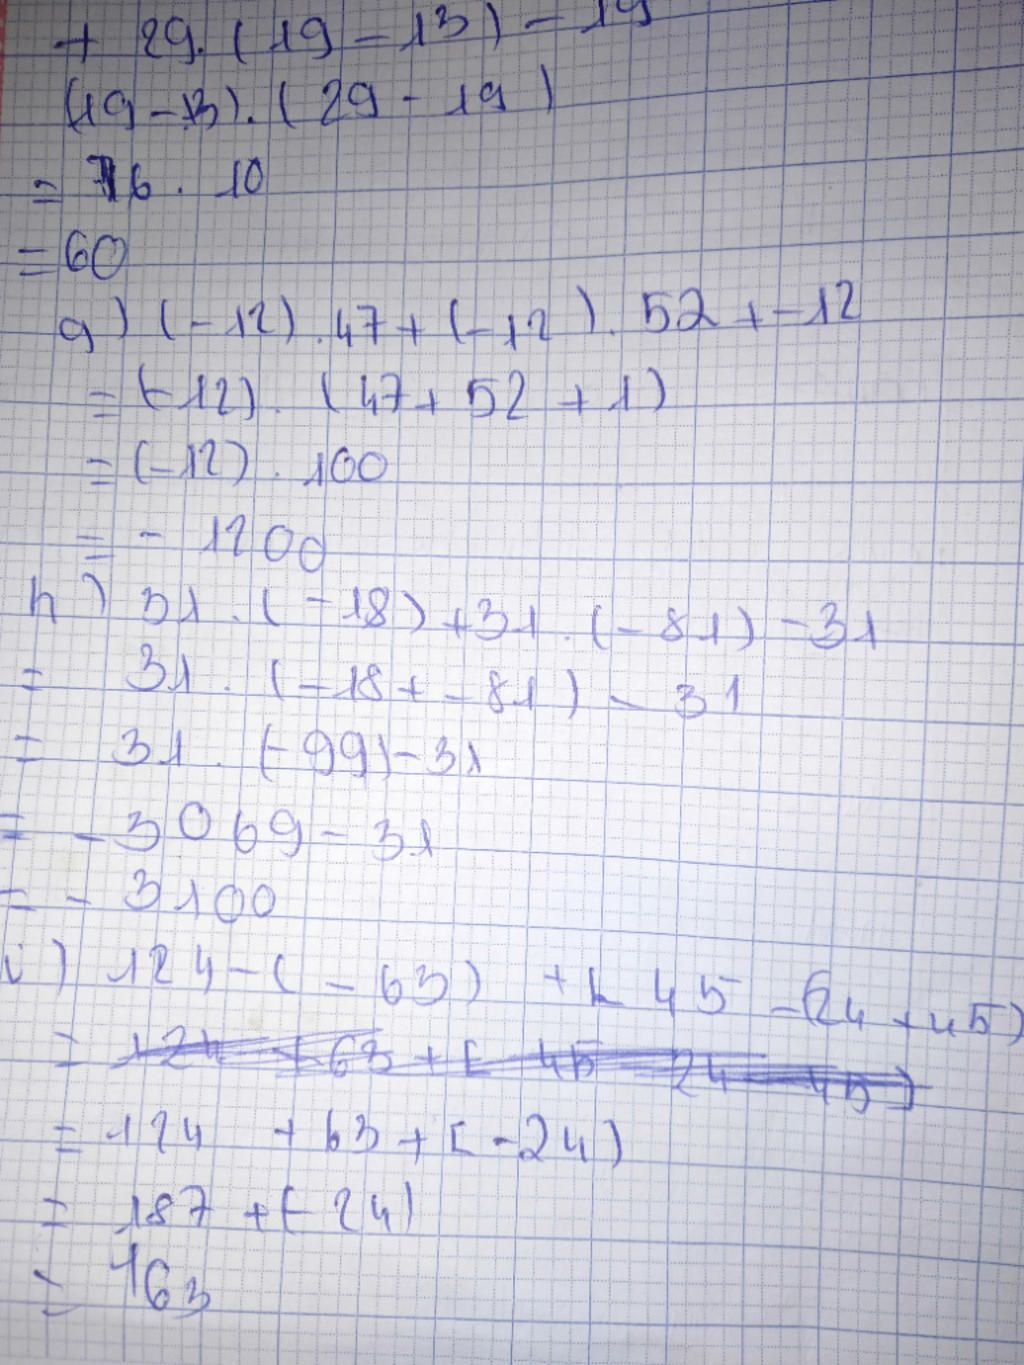 + 29. (19 - 13) - 19
(19 - 13). (29 - 19)
= 6. 10
= 60
g) (-12). 47 + (-12). 52 + -12
= (-12). (47 + 52 + 1)
= (-12). 100
= - 1200
h) 31. (-18) + 31. (-81) - 31
= 31. (-18 + -81) - 31
= 31. (-99) - 31
= - 3069 - 31
= - 3100
i) 124 - (-63) + [- 45 - (24 + 45)
= 124 + 63 + [-24)
= 187 + (-24)
= 163